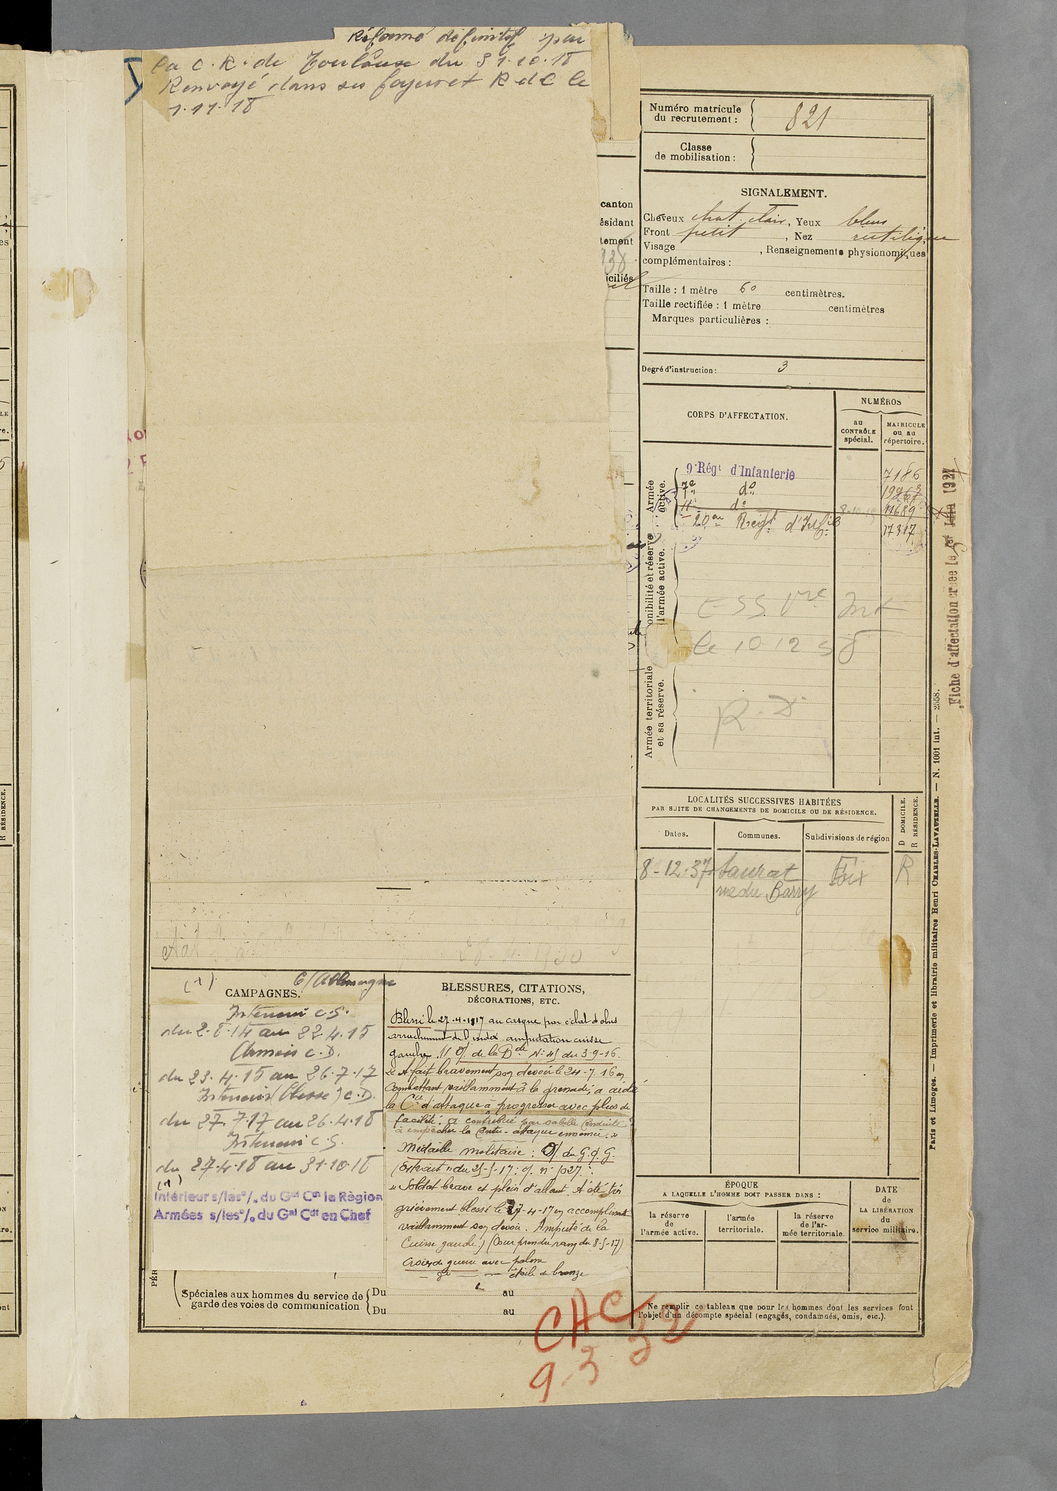 Réformé définitif par
la C. R. de Toulouse du 31.10.18
Renvoyé dans ses foyers et R d C le
1.11.18
Numéro matricule
du recrutement : 821
Classe
de mobilisation :
canton
ésidant
tement
iciliés
SIGNALEMENT.
Cheveux chat. clair, Yeux bleus
Front petit, Nez rectiligne
Visage , Renseignements physionomiques
complémentaires :
Taille : 1 mètre 60 centimètres.
Taille rectifiée : 1 mètre centimètres
Marques particulières :
Degré d'instruction : 3
CORPS D'AFFECTATION.
NUMÉROS
au
CONTRÔLE
spécial.
MATRICULE
ou au
répertoire.
Armée
active.
9e Régt d'Infanterie 7186
7e do
11e do 11689
20e Regt d'Inf ie 17317
onibilité et réserve
l'armée active.
le 10 12 38
Armée territoriale
et sa réserve.
R. D
Fiche d'affectation créée le Juin 1927
LOCALITÉS SUCCESSIVES HABITÉES
PAR SUITE DE CHANGEMENTS DE DOMICILE OU DE RÉSIDENCE.
Dates.
Communes.
Subdivisions de région
D DOMICILE.
R RÉSIDENCE.
8-12-37 Saurat Foix R
rue du Barry
(1) C/Allemagne
CAMPAGNES.
Intérieur C.S.
du 2.8.14 au 22.4.15
Armées C.D.
du 23.4.15 au 26.7.17
Intérieur (Blessé) C.D.
du 27.7.17 au 26.4.18
Intérieur C.S.
du 27.4.18 au 31.10.18
(1)
Intérieur s/les o/. du Gal Ct la Région
Armées s/les o/. du Gal Cdt en Chef
BLESSURES, CITATIONS,
DÉCORATIONS, ETC.
Blessé le 27.4.1917 au casque par éclat d'obus
arrachement de l'index amputation cuisse
gauche. O/ de la Bde No 45 du 3.9.16.
« A fait bravement son devoir le 24.7.16 en
combattant vaillamment à la grenade, a aidé
la Cie d'attaque à progresser avec plus de
facilité. a contribué par sa belle conduite
à empêcher la contre-attaque ennemie. »
Médaille militaire : O/ du G.Q.G.
(Extrait) du 25-5-17 :
« Soldat brave et plein d'allant. A été très
grièvement blessé le 27-4-17 en accomplissant
vaillamment son devoir. Amputé de la
Cuisse gauche » (Pour prendre rang du 8-5-17)
Croix de guerre avec palme
étoile de bronze
Spéciales aux hommes du service de
garde des voies de communication
Du au
Du au
ÉPOQUE
A LAQUELLE L'HOMME DOIT PASSER DANS :
la réserve
de
l'armée active.
l'armée
territoriale.
la réserve
de l'ar-
mée territoriale.
DATE
de
LA LIBÉRATION
du
service militaire.
Ne remplir ce tableau que pour les hommes dont les services font
l'objet d'un décompte spécial (engagés, condamnés, omis, etc.).
CAC
9-3 32
Paris et Limoges. — Imprimerie et librairie militaires Henri CHARLES-LAVAUZELLE. — N. 1001 int. — 2558.
R RÉSIDENCE.